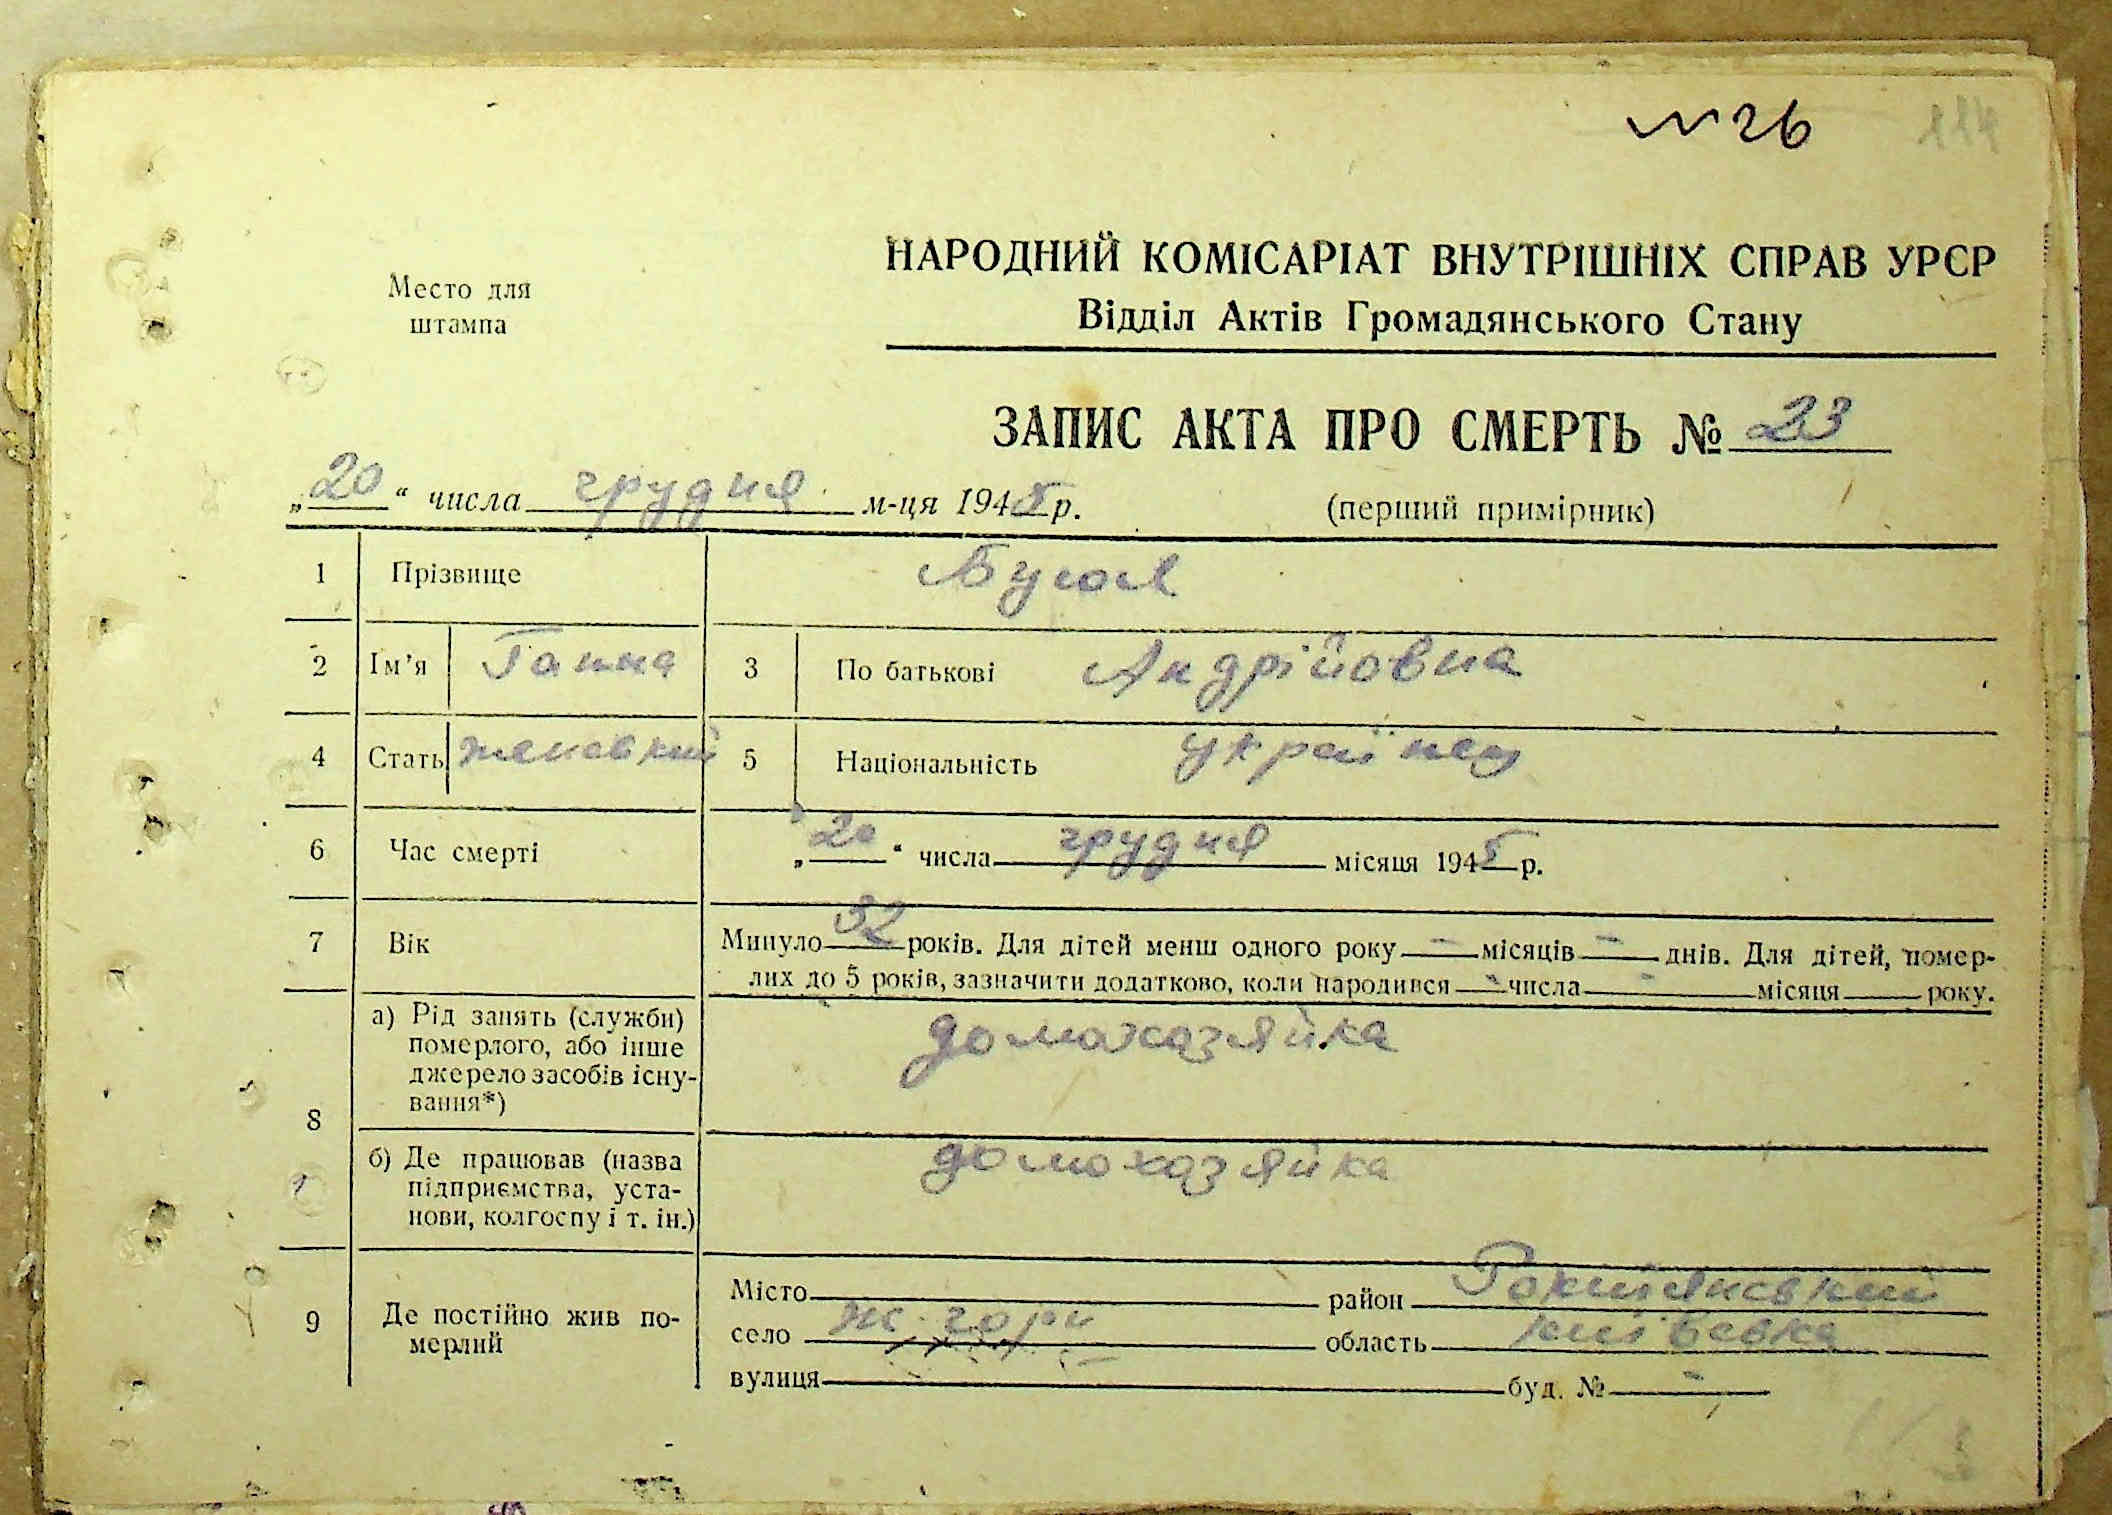 № 26 114
Место для
штампа
НАРОДНИЙ КОМІСАРІАТ ВНУТРІШНІХ СПРАВ УРСР
Відділ Актів Громадянського Стану
ЗАПИС АКТА ПРО СМЕРТЬ № 23
„20“ числа грудня м-ця 1945 р. (перший примірник)
1 Прізвище
2 Ім’я Ганна 3 По батькові Андрійовна
4 Стать женський 5 Національність українец
6 Час смерті „20“ числа грудня місяця 1945 р.
7 Вік Минуло 32 років. Для дітей менш одного року - місяців - днів. Для дітей, помер-
лих до 5 років, зазначити додатково, коли народився - числа - місяця року.
8 а) Рід занять (служби)
померлого, або інше
джерело засобів існу-
вання*) домохазяйка
б) Де працював (назва
підприємства, уста-
нови, колгоспу і т. ін.) домохазяйка
9 Де постійно жив по-
мерлий
Місто район Рокитянський
село Ж. гори область київська
вулиця буд. № -